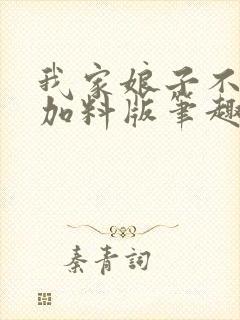 我家娘子不
加料版笔趣
秦青詞